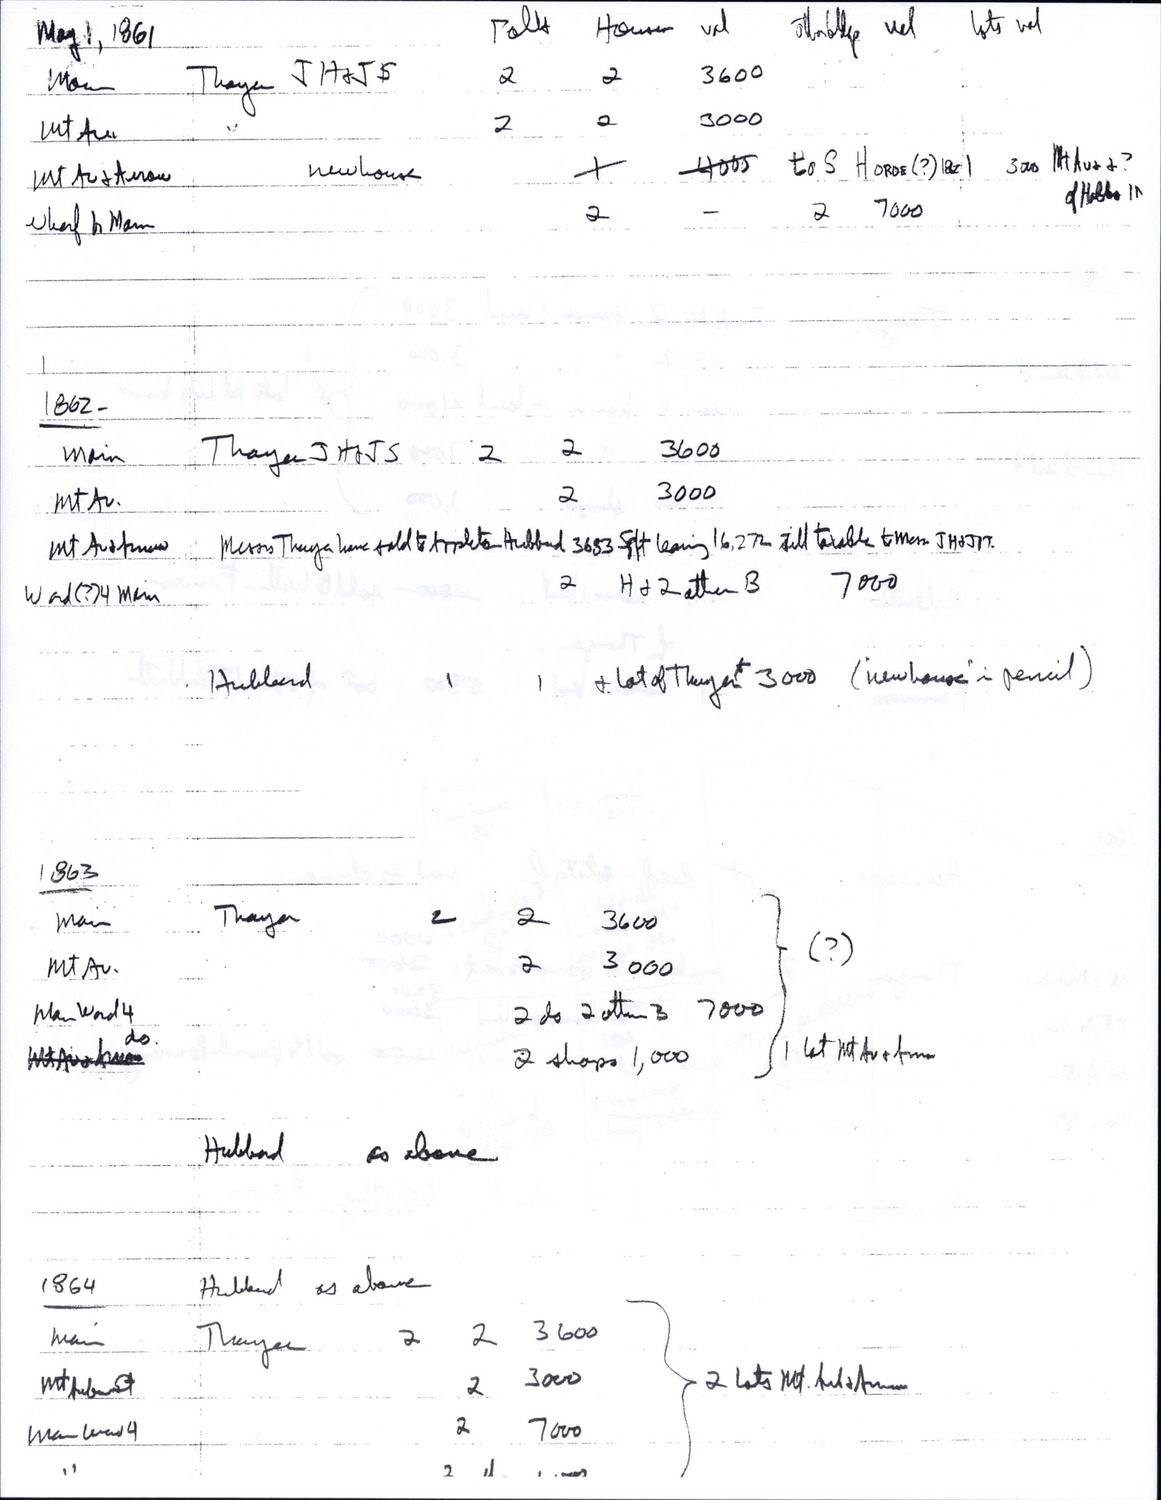 May 1, 1861 Polls Houses val val Lots val
Main Thayer J H & J S 2 2 3600
Mt Au " 2 2 3000
Mt Au & Arrow new house 1 4000 to S Horde (?) 3000 Mt Au & ?
Wharf Main 2 - 2 7000
1862-
Main Thayer J H & J S 2 2 3600
Mt Au. 2 3000
Mt Au & Arrow Messrs Thayer have sold to Appleton Hubbard 3683 Sq ft leaving 16,272 still taxable to Messrs JH & JS T.
Ward (?) 4 Main 2 H & 2 other B 7000
Hubbard 1 1 & Lot of Thayer 3000 ("new house" in pencil)
1863
Main Thayer 2 2 3600
Mt Au. 2 3000 (?)
Main Ward 4 2 do 2 other B 7000
do.
Mt Au & Arrow 2 shops 1,000 1 Lot Mt Au & Arrow
Hubbard as above
1864 Hubbard as above
Main Thayer 2 2 3600
Mt Auburn St 2 3000 2 Lots Mt. Aub & Arrow
Main Ward 4 2 7000
" 2